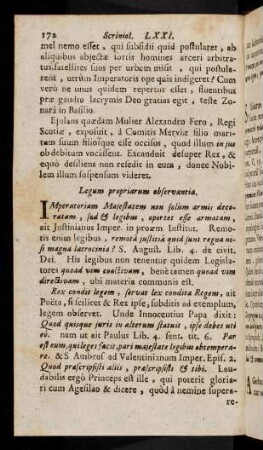 172 Scriniol. LXXI.
mel nemo esset, qui subsidii quid postularet, ab
aliquibus objectæ iortis homines arceri arbitra-
tus, satellites suos per urbem misit, qui postula-
rent, utrùm Imperatoris ope quis indigeret? Cum
verò ne unus quidem repertus esset, fluentibus
præ gaudio lacrymis Deo gratias egit, teste Zo-
narâ in Basilio.
Ejulans quædam Mulier Alexandro Fero, Regi
Scotiæ, exposuit, à Comitis Merviæ filio mari-
tum suum filiosque esse occisos, quod illum in jus
ob debitum vocâssent. Excanduit desuper Rex, &
equò desiliens non resedit in eum, donec Nobi-
lem illum suspensum videret.
Legum propriarum observantia.
IMperatoriam Majestatem non solùm armis deco-
ratam, sed & legibus, oportet esse armatam,
ait Justinianus Imper. in proœm Institut. Remo-
tis enim legibus, remotâ justitiâ quid sunt regna ni-
si magna latrocinia? S. August. Lib. 4. de civit.
Dei. His legibus non tenentur quidem Legisla-
tores quoad vim coactivam, benè tamen quoad vim
directivam, ubi materia communis est.
Rex condit legem, servat lex condita Regem, ait
Poëta, si scilicet & Rex ipse, subditis ad exemplum,
legem observet. Unde Innocentius Papa dixit:
Quod quisque juris in alterum statuit, ipse debet uti
eô. nam ut ait Paulus Lib. 4. sent. tit. 6. Par
est eum, qui leges facit, pari majestate legibus obtempera-
re. & S Ambros' ad Valentinianum Imper. Epist. 2.
Quod præscripsisti aliis, præscripsisti & tibi. Lau-
dabilis ergò Princeps est ille, qui poterit gloria-
ri cum Agesilao & dicere, quòd à nemine supera-
re-